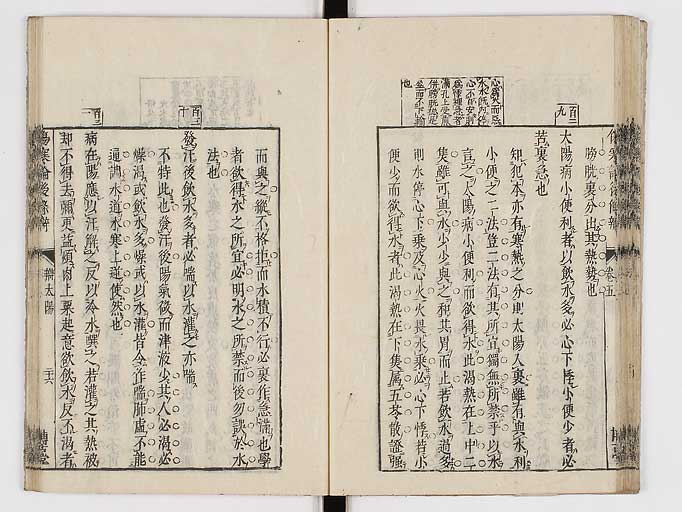 卷五
膀胱裏分出其熱勢也
百二九
太陽病小便利者以飲水多必心下悸小便少者必
苦裏急也
知犯本亦有寒熱之分則太陽入裏雖有與水利
小便之二法豈二法有其所宜獨無所禁乎以水
言之太陽病小便利而欲得水此渴熱在上中二
焦雖可與水少少與之和其胃而止若飲水過多
則水停心下乘及心火火畏水乘必心下悸若小
便少而欲得水者此渴熱在下焦屬五苓散證強
而與之縱不格拒而水積不行必裏作急滿也學
者欲得水之所宜必明水之所禁而後勿誤於水
法也
百三十
發汗後飲水多者必喘以水灌之亦喘
不特此也發汗後陽氣微而津液少其人必渴必
燥渴或飲水多燥或以水灌皆令作喘肺虛不能
通調水道水寒上逆使然也
病在陽應以汗解之反以冷水潠之若灌之其熱被
却不得去彌更益煩肉上粟起意欲飲水反不渴者
傷寒論後條辨
辨太陽
二十六